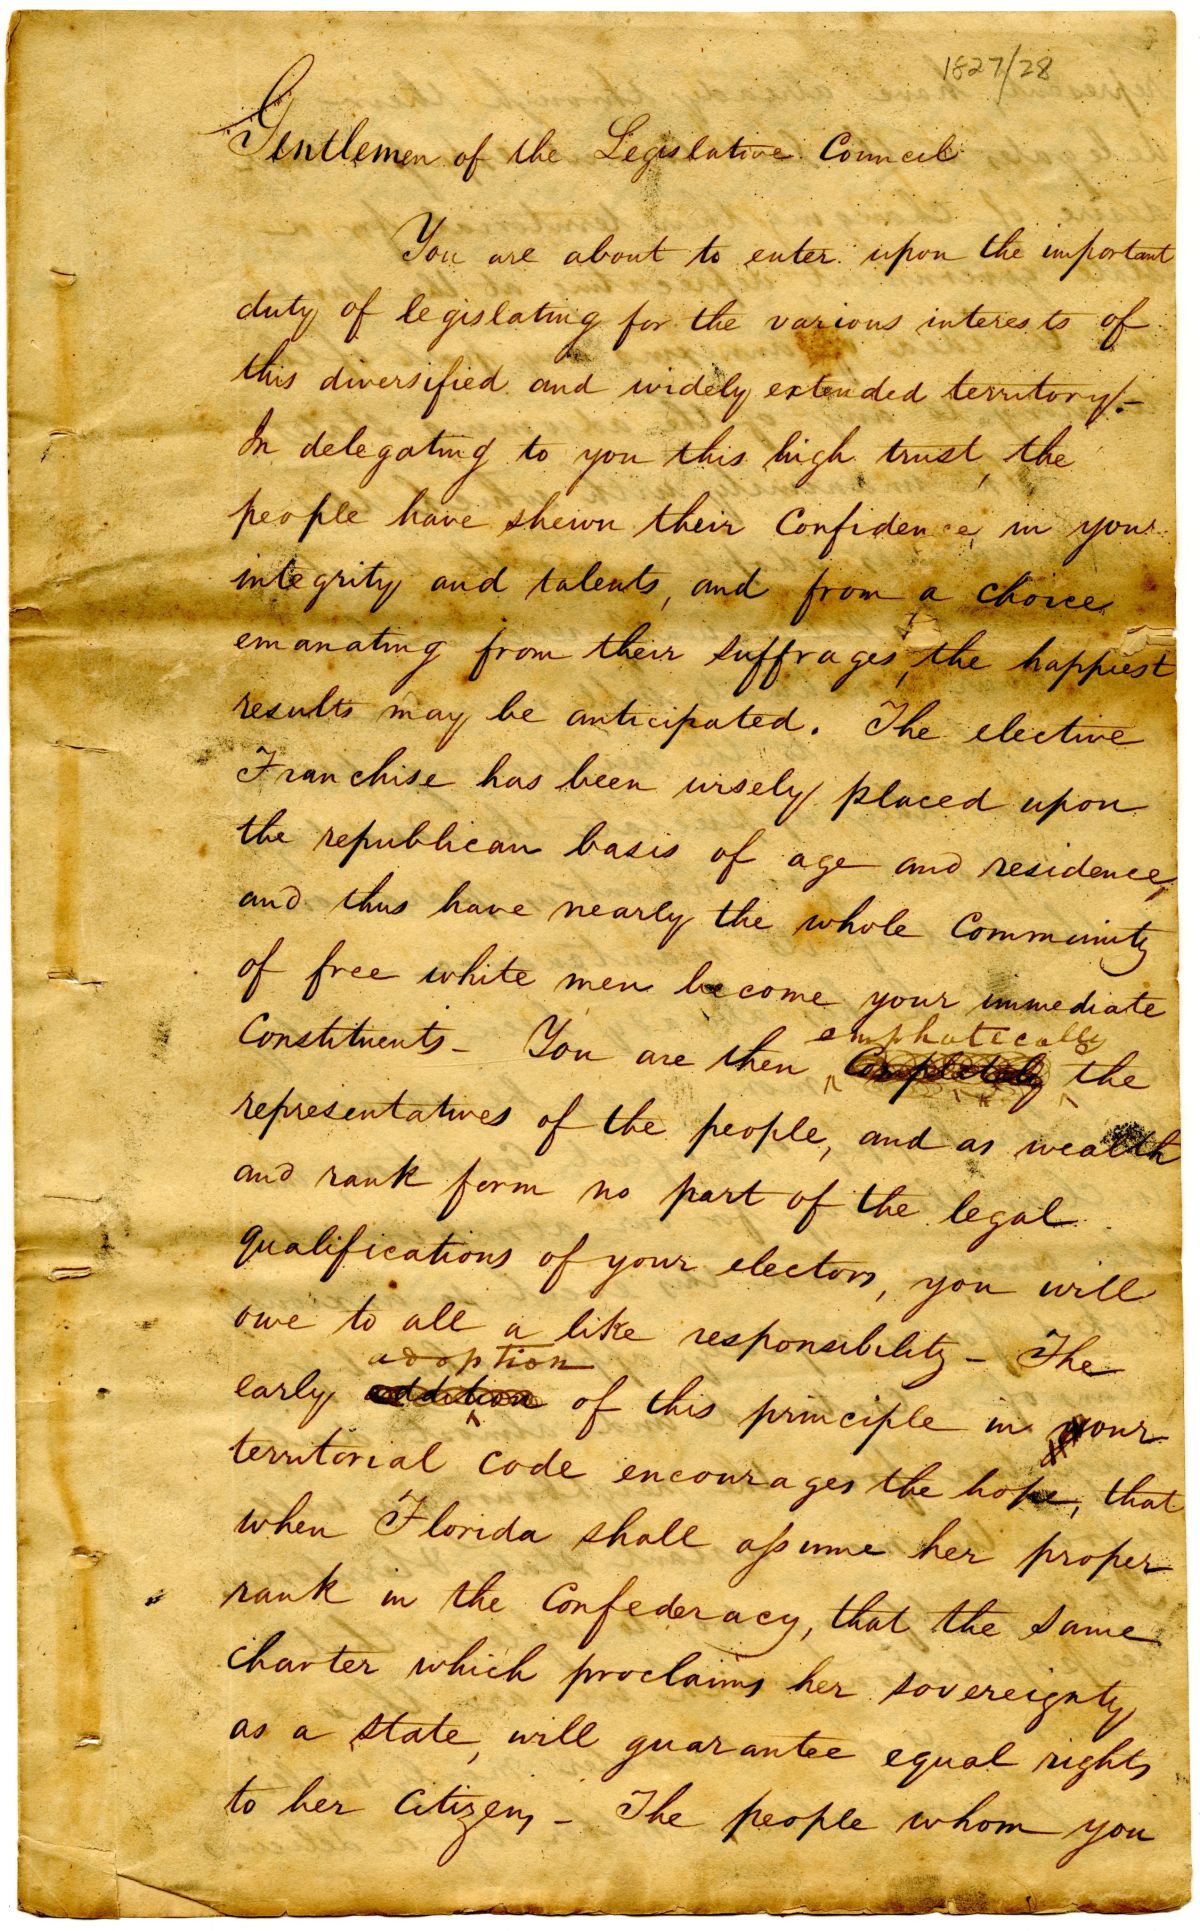 1827/28
Gentlemen of the Legislative Council
You are about to enter upon the important
duty of legislating for the various interests of
this diversified and widely extended territory.-
In delegating to you this high trust, the
people have shewn their Confidence, in your
integrity and talents, and from a choice
emanating from their suffrages, the happiest
results may be anticipated. The elective
Franchise has been wisely placed upon
the republican basis of age and residence,
and thus have nearly the whole Community
of free white men become your immediate
emphatically
Constituents - You are then Completely the
representatives of the people, and as wealth
and rank form no part of the legal
qualifications of your electors, you will
owe to all a like responsibility - The
adoption
early addition of this principle in your
territorial code encourages the hope, that
when Florida shall assume her proper
rank in the Confederacy, that the same
charter which proclaims her sovereignty
as a state, will guarantee equal rights
to her citizens - The people whom you